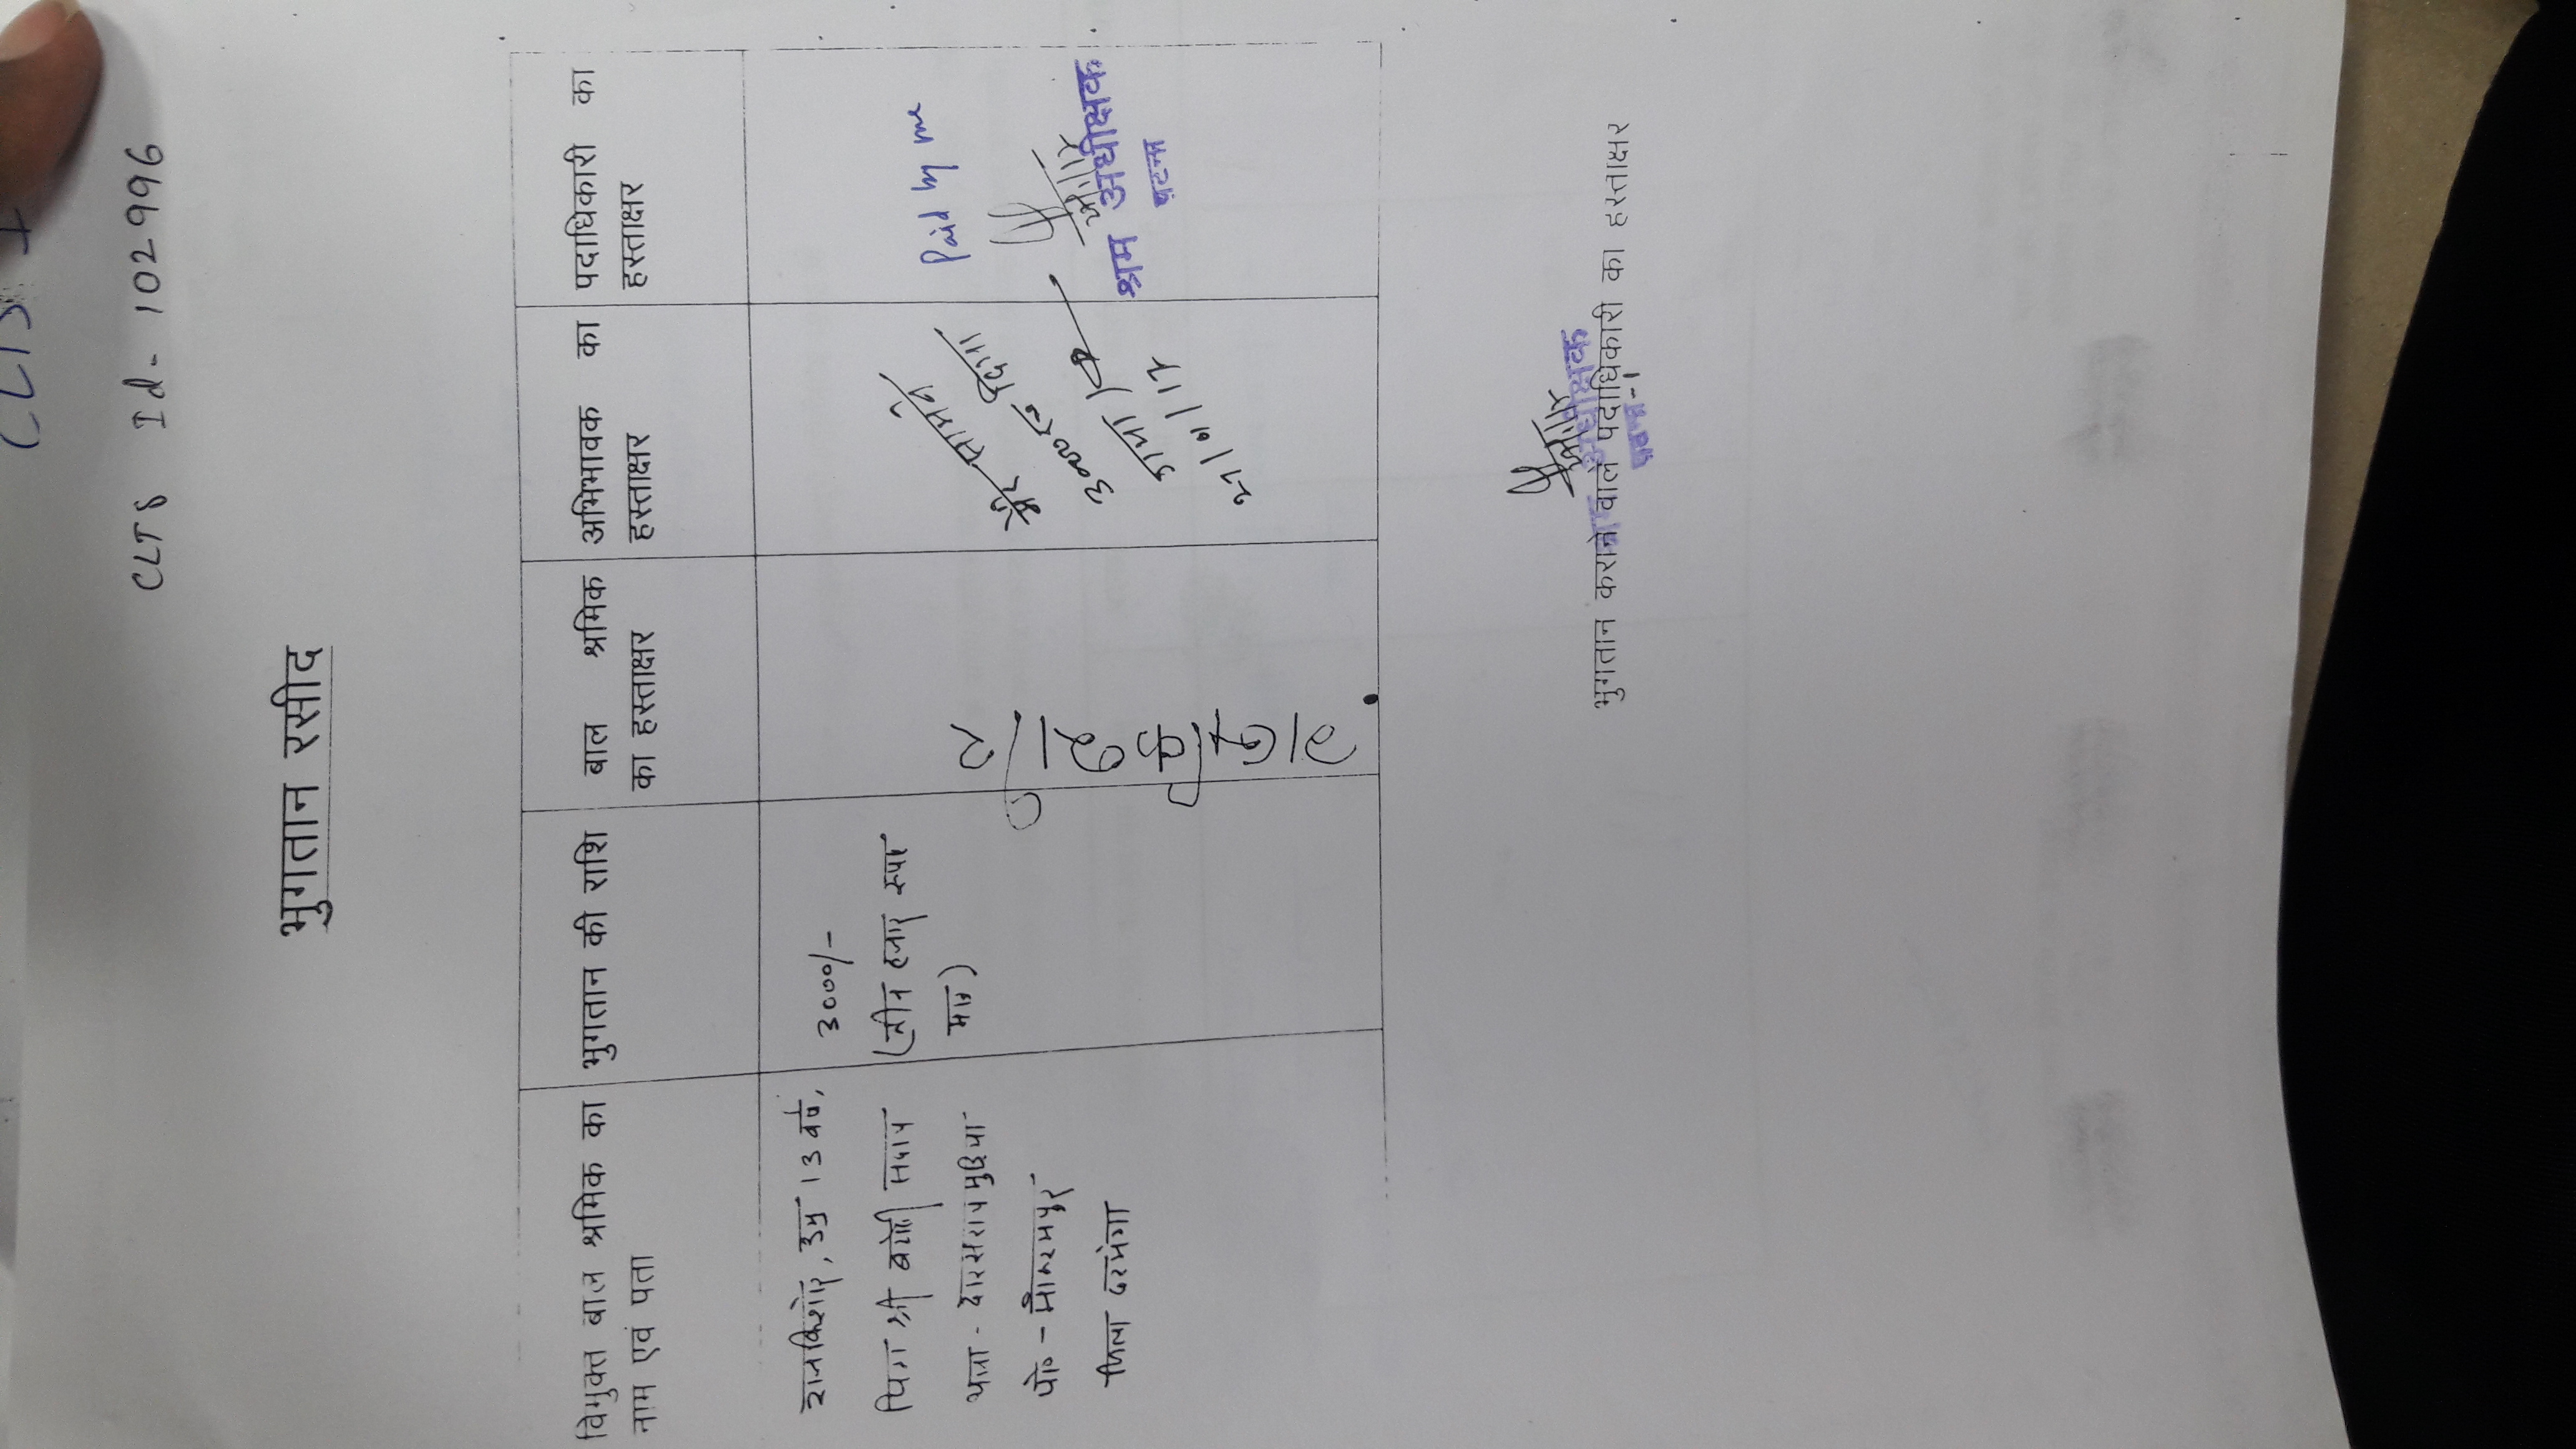 CLTS I
CLTS Id- 102996
भुगतान रसीद
विमुक्त बाल श्रमिक का
नाम एवं पता
भुगतान की राशि
बाल श्रमिक
का हस्ताक्षर
अभिभावक का
हस्ताक्षर
पदाधिकारी का
हस्ताक्षर
राजकिशोर, उम्र 13 वर्ष,
पिता श्री
पो० -
जिला दरभंगा
3000/-
(तीन हजार रूपए
मात्र)
राजकिशोर
मेरे सामने
3000 रू दिया
गया
27/01/17
Paid by me
श्रम अधीक्षक
पटना
श्रम अधीक्षक
भुगतान कराने वाले पदाधिकारी का हस्ताक्षर
पटना-1